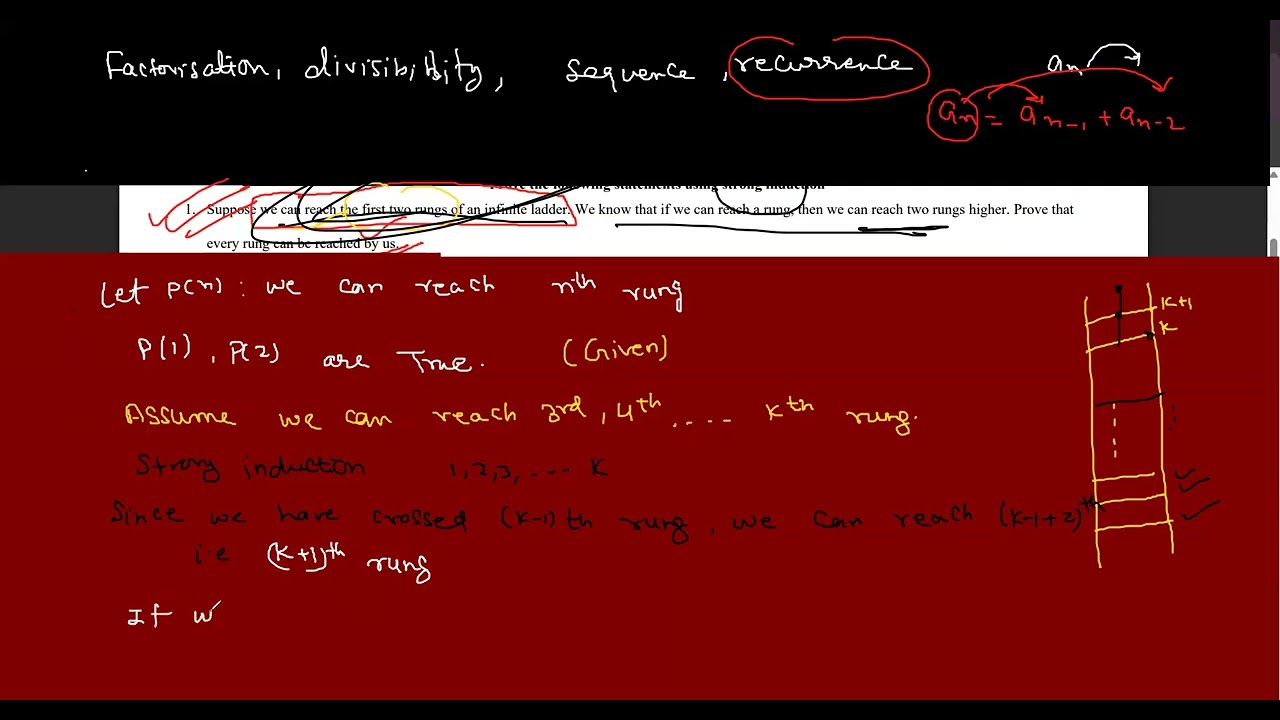 Factorisation, divisibility, sequence, recurrence
aₙ
aₙ = aₙ₋₁ + aₙ₋₂
the following statements using strong induction
1. Suppose we can reach the first two rungs of an infinite ladder. We know that if we can reach a rung, then we can reach two rungs higher. Prove that
every rung can be reached by us.
Let P(n) : we can reach nth rung
P(1), P(2) are True. (Given)
Assume we can reach 3rd, 4th .... kth rung.
Strong induction 1,2,3, .... k
Since we have crossed (k-1)th rung, we can reach (k-1+2)th
i.e (k+1)th rung
If w
k+1
k